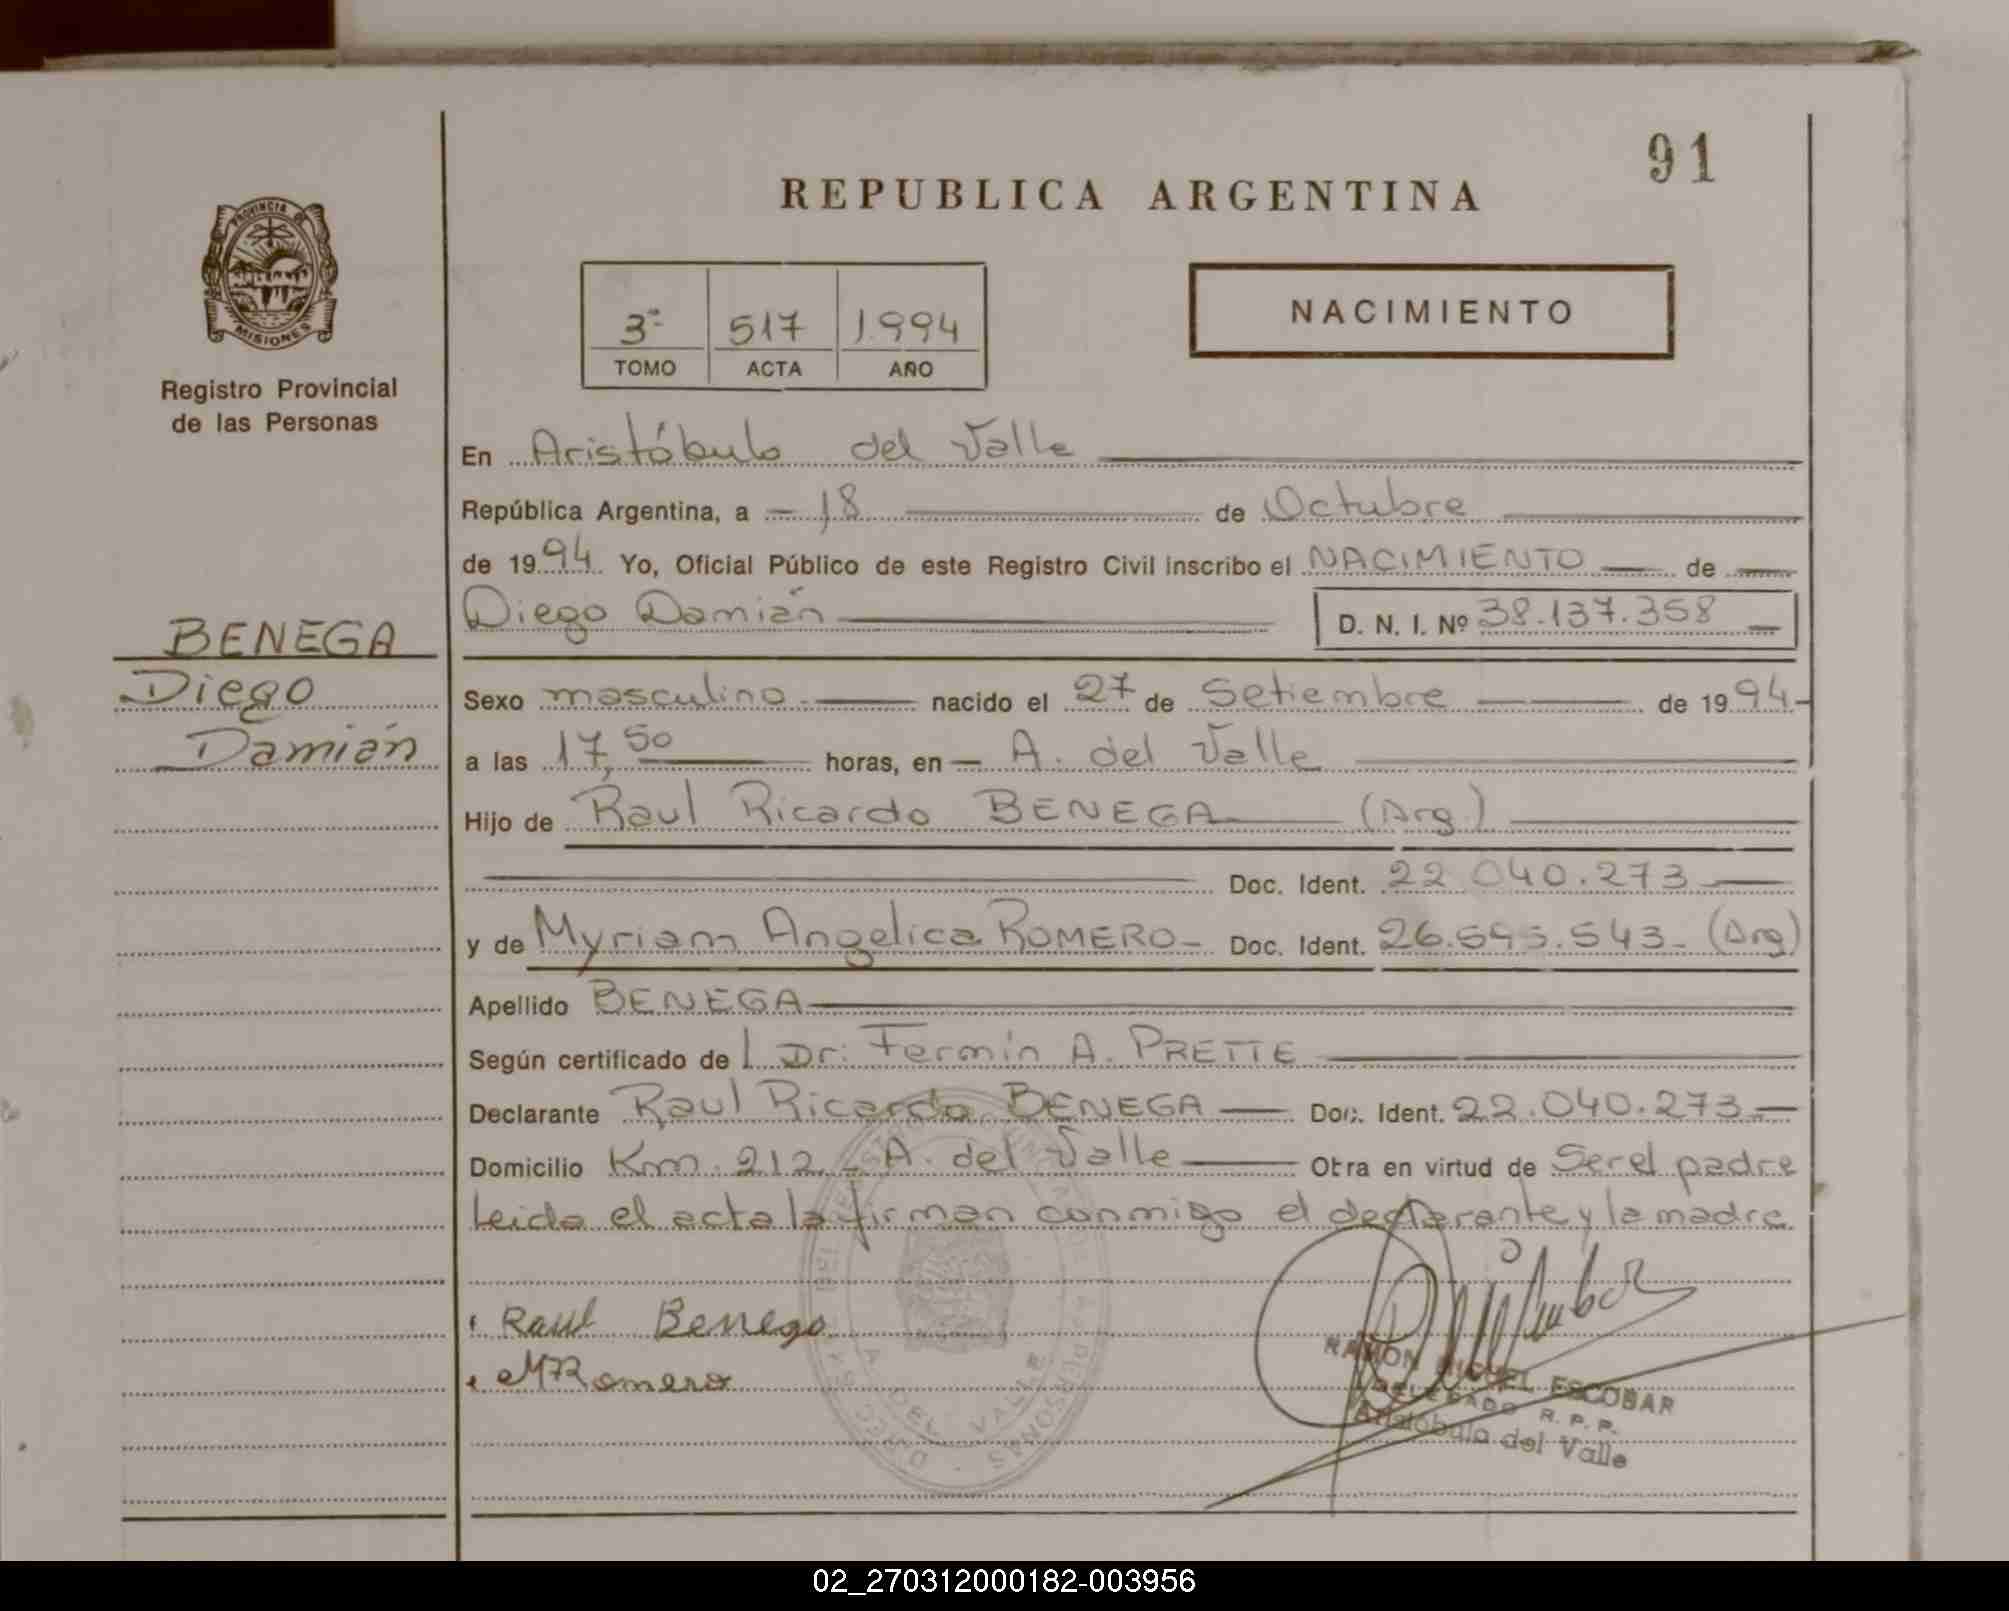 91
REPUBLICA ARGENTINA
PROVINCIA DE
MISIONES
Registro Provincial
de las Personas
NACIMIENTO
3º 517 1.994
TOMO ACTA AÑO
En Aristóbulo del Valle
República Argentina, a - 18 de Octubre
de 1994. Yo, Oficial Público de este Registro Civil inscribo el NACIMIENTO de
Diego Damián D. N. I. Nº 38.137.358
BENEGA
Diego
Damián
Sexo masculino nacido el 27 de Setiembre de 1994-
a las 17,50 horas, en A. del Valle
Hijo de Raul Ricardo BENEGA (Arg.)
Doc. Ident. 22.040.273
y de Myriam Angelica ROMERO- Doc. Ident. 26.595.543- (Arg)
Apellido BENEGA
Según certificado de l Dr: Fermín A. PRETTE
Declarante Raul Ricardo BENEGA Doc. Ident. 22.040.273-
Domicilio Km. 212 - A. del Valle Obra en virtud de Ser el padre
Leida el acta la firman conmigo el declarante y la madre
Raul Benega
MRomero
A. DEL VALLE
RAMON MIGUEL ESCOBAR
DELEGADO R. P. P.
Aristóbulo del Valle
02_270312000182-003956